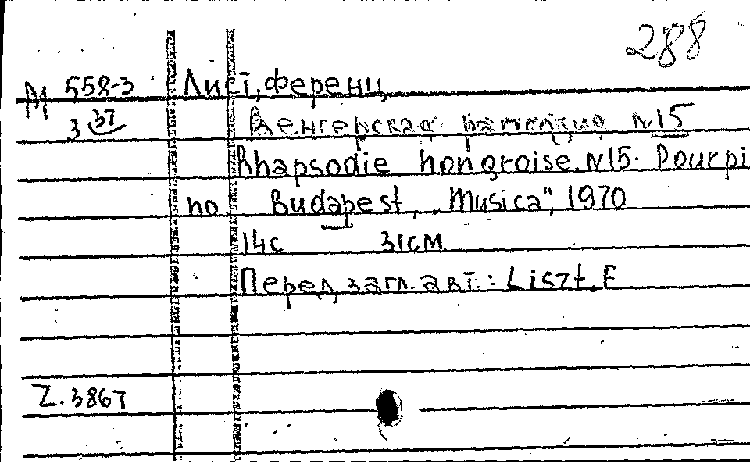 288
М 558-3 Лист, ференц
3 37 Венгерская рапсодия №15
Rhapsodie hongroise. N15. Pour pi
no Budapest, „Musica", 1970
14с 31см
Перед загл. авт.: Liszt. F
Z. 3867